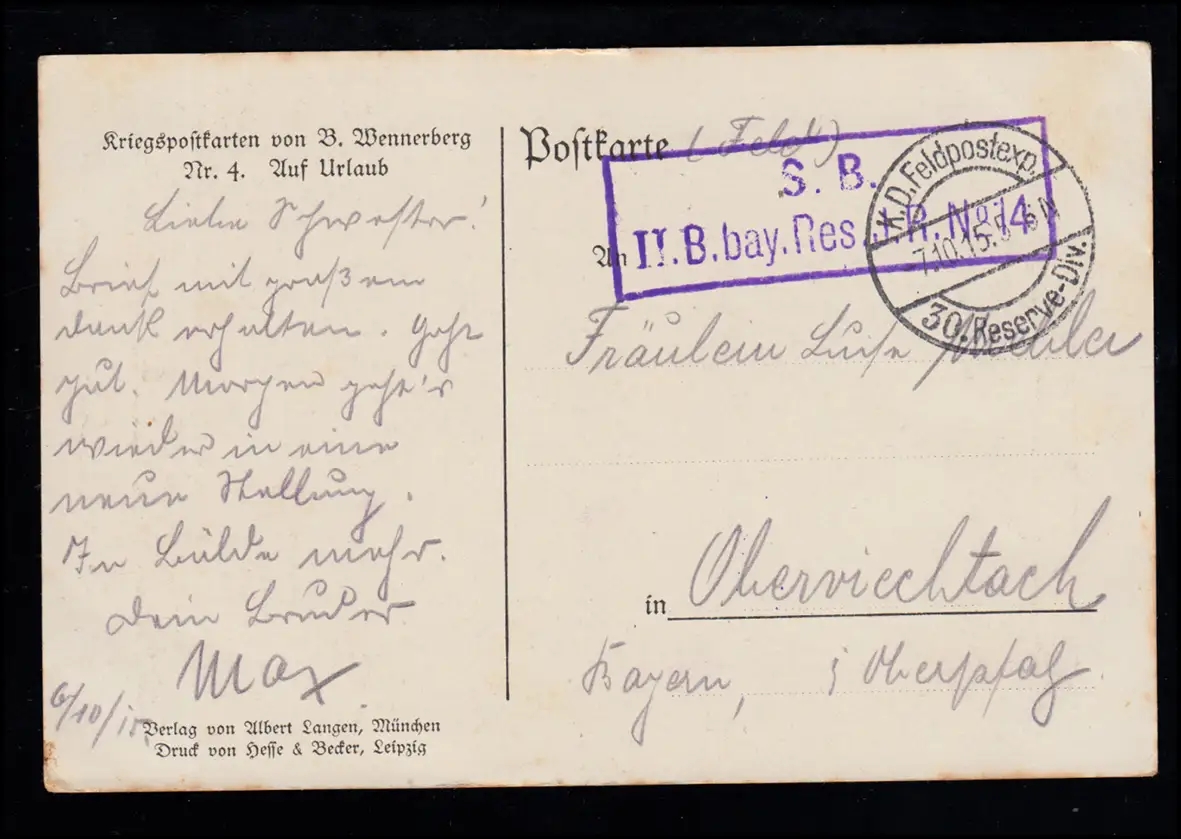 Kriegspostkarten von B. Wennerberg
Nr. 4. Auf Urlaub
Liebe Schwester!
Brief mit großem
Dank erhalten. Geht
gut. Morgen geht's
wieder in eine
neue Stellung.
In Bälde mehr.
Dein Bruder
Max
6/10/15.
Verlag von Albert Langen, München
Druck von Hesse & Becker, Leipzig
Postkarte (Feld)
S. B.
II. B. bay. Res. I. R. No 14
K.D. Feldpostexp.
7.10.15.
30. Reserve-Div.
An
Fräulein Luise
in Oberviechtach
Bayern, Oberpfalz